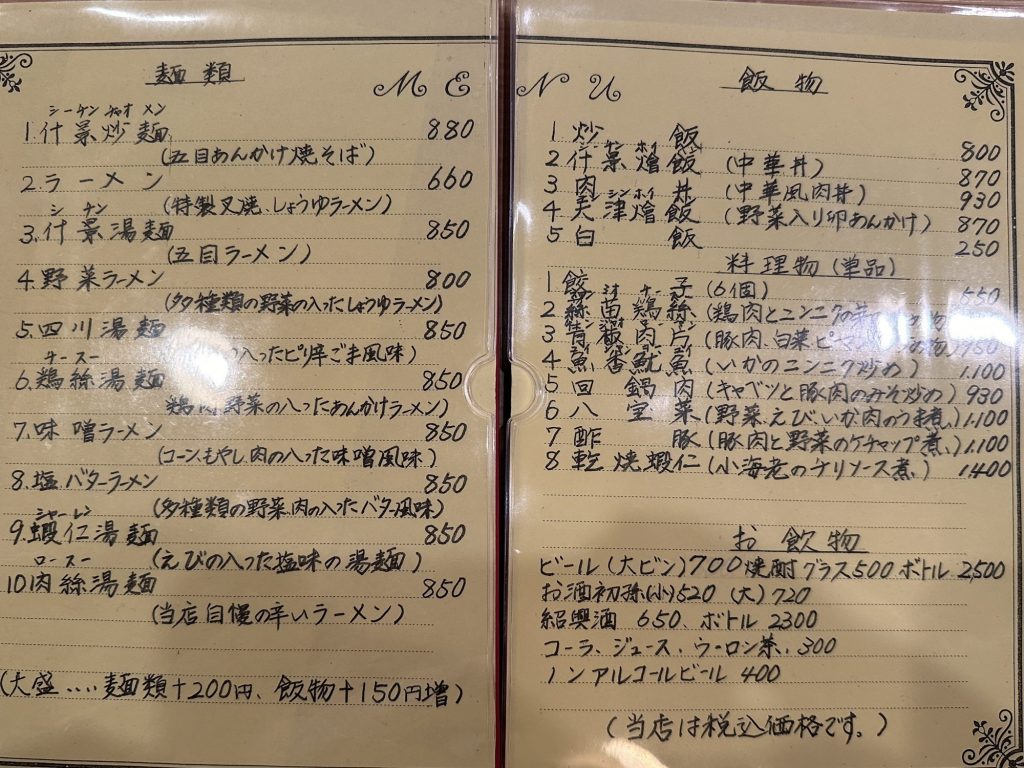 麺類
ME
シーチン チャオ メン
1.什景炒麺 880
(五目あんかけ焼そば)
2.ラーメン 660
(特製叉焼.しょうゆラーメン)
シ チン
3.什景湯麺 850
(五目ラーメン)
4.野菜ラーメン 800
(多種類の野菜の入ったしょうゆラーメン)
5.四川湯麺 850
入ったピリ辛ごま風味)
チースー
6.鶏絲湯麺 850
鶏肉野菜の入ったあんかけラーメン)
7.味噌ラーメン 850
(コーン.もやし.肉の入った味噌風味)
8.塩バターラーメン 850
(多種類の野菜.肉の入ったバター風味)
シャーレン
9.蝦仁湯麺 850
(えびの入った塩味の湯麺)
ロースー
10.肉絲湯麺 850
(当店自慢の辛いラーメン)
(大盛....麺類+200円、飯物+150円増)
NU
飯物
1.炒飯 800
2.什景燴飯(中華丼) 870
3.肉丼(中華風肉丼) 930
4.天津燴飯(野菜入り卵あんかけ) 870
5白飯 250
料理物(単品)
1.餃子(6個) 550
2 苗鶏絲(鶏肉とニンニクの
3 肉片(豚肉、白菜、ピーマン 950
4 魚香魷魚(いかのニンニク炒め) 1.100
5 回鍋肉(キャベツと豚肉のみそ炒め) 930
6 八宝菜(野菜.えび.いか肉のうま煮) 1.100
7 酢豚(豚肉と野菜のケチャップ煮) 1.100
8 乾焼蝦仁(小海老のチリソース煮) 1.400
お飲物
ビール(大ビン)700焼酎グラス500ボトル2500
お酒初孫(小)520 (大)720
紹興酒 650、ボトル 2300
コーラ、ジュース、ウーロン茶、300
ノンアルコールビール 400
(当店は税込価格です。)